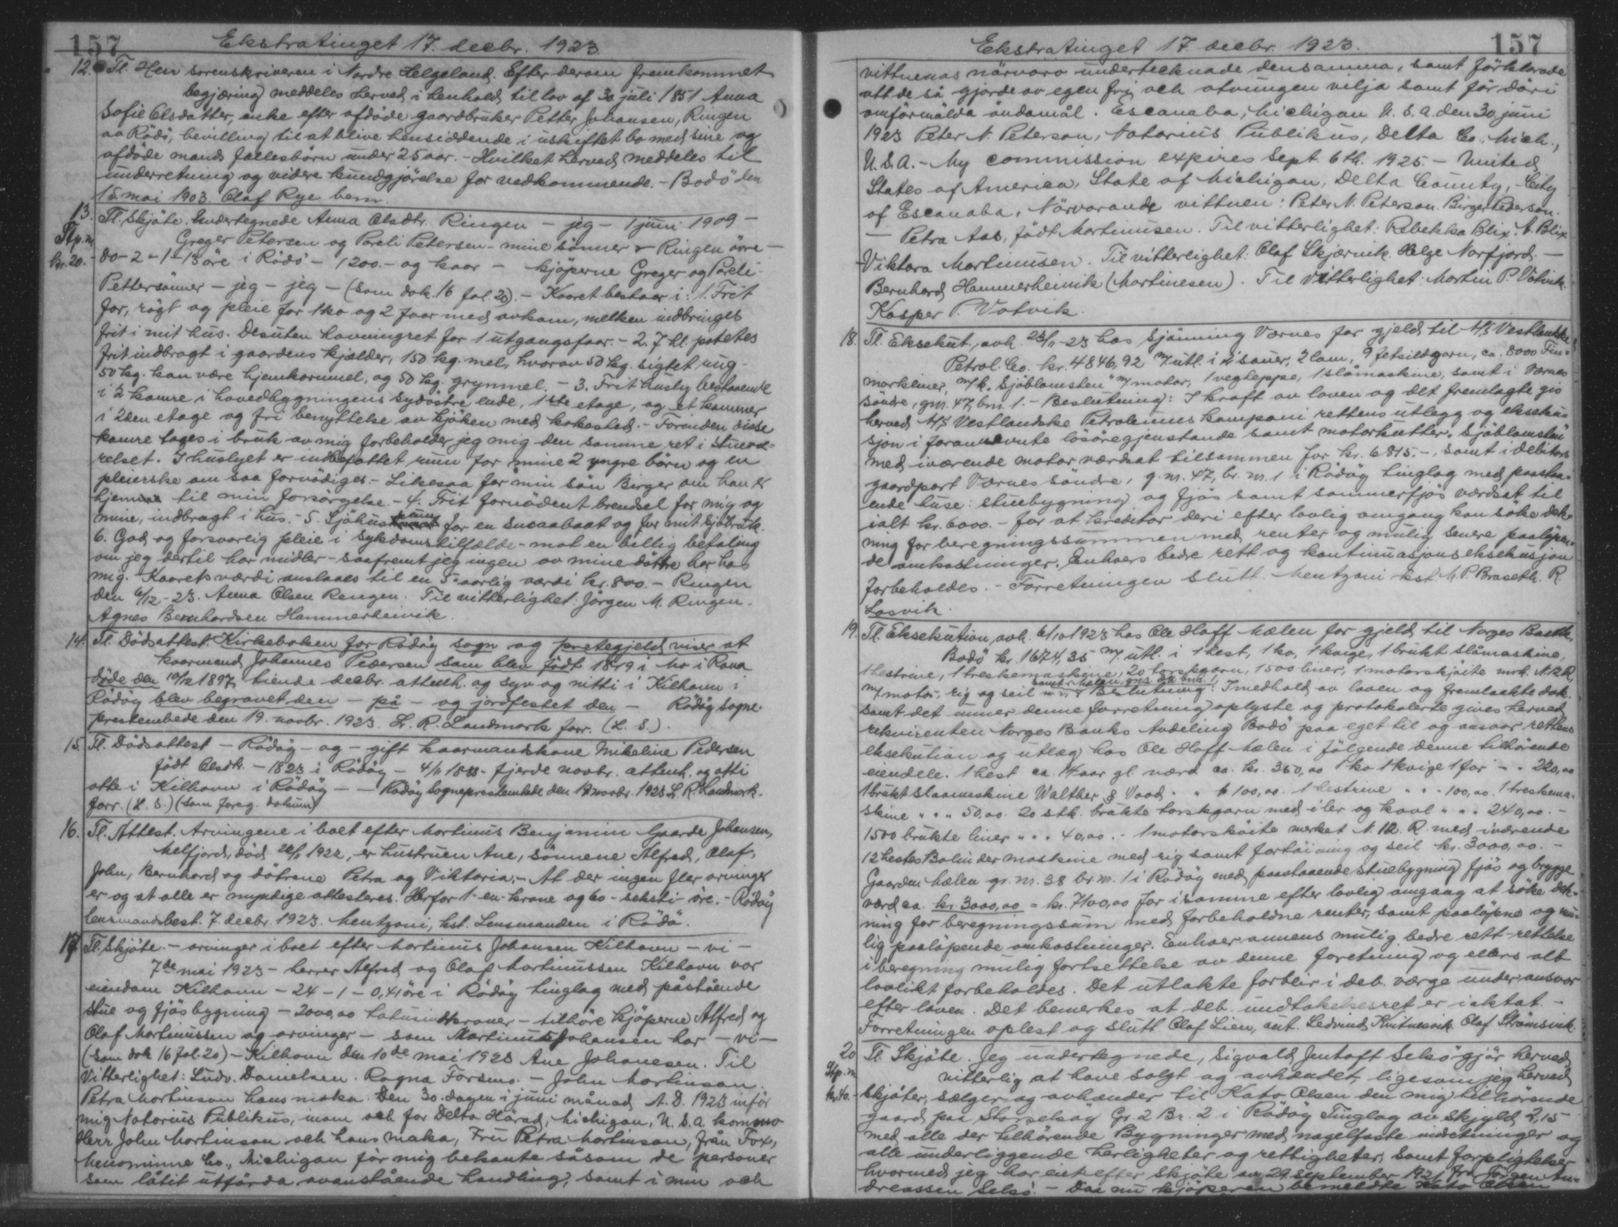 157
Ekstratinget 17. decbr. 1923
12. Tl. Herr sorenskriveren i Nordre Helgeland. Efter derom fremkommet
begjæring meddeles herved i henhold til lov af 30 juli 1851 Anna
Sofie Olsdatter, enke efter afdøde gaardbruker Petter Johansen, Ringen
av Rødø, bevilling til at blive hensiddende i uskiftet bo med sine og
afdøde mands fællesbørn under 25 aar. - Hvilket herved meddeles til
underretning og videre kundgjørelse for vedkommende. - Bodø den
15. mai 1903. Olaf Rye bem.
13. Tl. Skjøte. Undertegnede Anna Olsdtr. Ringen - jeg - 1 juni 1909 -
Stp. m kr. 20. Greger Petersen og Poreli Petersen - mine sønner - Ringen øvre -
80 - 2 - 1 - 13 øre i Rødø - 1200.- og kaar - kjøperne Greger og Poreli
Pettersønner - jeg - jeg - (som dok. 16 fol. 20). - Kaaret bestaar i: 1. Frit
for, røgt og pleie for 1 ko og 2 faar med avkom, melken indbringes
frit i mit hus. Desuten havneingret for 1 utgangsfaar. - 2. 7 hl. potetes
frit indbragt i gaardens kjælder, 150 kg. mel, hvorav 50 kg. sigtet rug
50 kg. kan være hjemkornmel, og 50 kg. grynmel. - 3. Frit husly bestaaende
i 2 kamre i hovedbygningens sydøstre ende, 1ste etage, og et kammer
i 2den etage og fri benyttelse av kjøken med kokested. - Forinden disse
kamre tages i bruk av mig forbeholder jeg mig den samme ret i stuevæ-
relset. I huslyet er indbefattet rum for mine 2 yngre børn og en
pleierske om saa fornødiges - Likesaa for min søn Birger om han er
hjemme til min forsørgelse - 4. Frit fornødent brendsel for mig og
mine, indbragt i hus. - 5. Sjøhusrum for en snesaabaat og for mit sjøbruk.
6. God og forsvarlig pleie i sykdomstilfælde - mot en billig betaling
om jeg dertil har midler - saafremt jeg ingen av mine døttre har hos
mig. - Kaarets værdi anslaaes til en 5-aarlig værdi kr. 800. - Ringen
den 6/12 - 23. Anna Olsen Rengen. Til vitterlighet: Jørgen M. Ringen.
Agnes Bernhardsen Hammerheimvik.
14. Tl. Dødsattest. Kirkeboken for Rødøy sogn og prestegjeld viser at
kaarmand Johannes Pedersen som blev født 1819 i Mo i Rana
døde den 10/12 1897 tiende decbr. attenh. og syv og nitti i Kilhavn i
Rødøy blev begravet den - på - og jordfestet den - Rødøy sogne-
prestembede den 19. novbr. 1923. L. R. Landmark forr. (L. S.).
15. Tl. Dødsattest - Rødøy - og - gift kaarmandskone Mikeline Pedersen
født Olsdtr. - 1823 i Rødøy - 4/11 1888 - fjerde novbr. attenh. og otti
otte i Kilhavn i Rødøy - - Rødøy sogneprestembede den 19 novbr. 1923 L. R. Landmark.
forr. (L. S.) (som foreg. dokum.)
16. Tl. Attest. Arvingene i boet efter Mortinus Benjamin Gaarde Johansen,
Melfjord, død 1922, er hustruen Ane, sønnene Alfred, Olaf,
John, Bernhard og døtrene Petra og Viktoria. - At der ingen fler arvinger
er og at alle er myndige attesteres. Herfor 1 - en - krone og 60 - seksti - øre. - Rødøy
lensmandsbest. 7 decbr. 1923. Mentzoni, kst. Lensmanden i Rødø.
17. Tl. Skjøte. - arvinger i boet efter Mortinus Johansen Kilhavn - vi -
7de mai 1923 - herrer Alfred og Olaf Mortinussen Kilhavn vor
eiendom Kilhavn - 24 - 1 - 0,41 øre i Rødøy tinglag med påstående
stue og fjøsbygning - 2000,00 totusindkroner - tilhøre kjøperne Alfred og
Olaf Mortinussen og arvinger - som Mortinus Johansen har - vi -
(som dok 16 fol. 20) - Kilhavn den 10de mai 1923 Ane Johanesen. Til
Vitterlighet: Ludv. Danielsen. Ragna Forsmo. - John Mortinson.
Petra Mortinson hans maka. Den 30. dagen i juni månad A. D. 1923 inför
mig Notarius Publikus, inom och for Delta Härad, Michigan, U. S. A. kommo
Herr John Mortinson och hans maka, Fru Petra Mortinson, från Fox,
Menominne Co., Michigan för mig bekante såsom de personer
som låtit utfärda ovanstående handling, samt i min och
157
Ekstratinget 17 decbr. 1923.
vittnenas närvaro undertecknade densamma, samt förklarade
att de så gjorde av egen fri och otvungen vilja samt för däri
omförmälda ändamål. Escanaba, Michigan U. S. A. den 30 juni
1923 Peter N. Peterson, Notarius Publikus, Delta Co. Mich.,
U. S. A. - My commission expires Sept. 6th. 1925. - United
States of America, State of Michigan, Delta County, City
of Escanaba. Närvarande vittnen: Peter N. Peterson. Birger Pederson.
- Petra Aas, født Mortinusen. Til vitterlighet: Rebekka Blix. A. Blix
Viktora Mortinusen. Til vitterlighet: Olaf Skjærvik. Helge Norfjord. -
Bernhard Hammerheimvik (Mortinesen). Til Vitterlighet: Martin P. Votvik.
Kasper P. Votvik.
18. Tl. Eksekut., avh. 23/11-23 hos Sjånning Værnes for gjeld til A/S Vestlandske
Petrol. Co. kr. 4846,92 m/utl. i 4 sauer, 2 lam, 9 fetsildgarn, ca. 8000 Fin-
markliner, m/k. "Sjøblomsten" m/motor, 1 vegteppe, 1 slåmaskine, samt i Værnes
søndre, g.nr. 47, b.nr. 1. - Beslutning: I kraft av loven og det fremlagte gis
herved A/S Vestlandske Petroleums kompani rettens utlegg og ekseku-
sjon i forannevnte løsøregjenstande samt motorkutter "Sjøblomsten"
med iværende motor værdsat tilsammen for kr. 6815,-, samt i debitors
gaardpart Værnes søndre, g.nr. 47, br.nr. 1 i Rødøy tinglag med paastaa-
ende huse: stuebygning og fjøs samt sommerfjøs værdsat til
ialt kr. 6000.- for at kreditor deri efter lovlig omgang kan søke dek-
ning for beregningssummen med renter og mulig senere paaløpen-
de omkostninger. Enhvers bedre rett og kontinuasjonseksekusjon
forbeholdes. - Forretningen slutt. Mentzoni kst. M. P. Braseth. R
Losvik.
19. Tl. Eksekution, avh. 6/10 1923 hos Ole Hoff Mælen for gjeld til Norges Bank,
Bodø kr. 1674,35 m/utl. i 1 hest, 1 ko, 1 kvige, 1 brukt slåmaskine,
1 hestrive, 1 treskemaskine, 20 torskgarn, 1500 liner, 1 motorskjøite mrk. N. 12 R.
m/motor, rig og seil samt i Mælen gnr. 38 bnr. 1. Beslutning: I medhold av loven og fremlakte dok.
samt det under denne forretning oplyste og protokolerte gives herved
rekvirenten Norges Banks Avdeling Bodø paa eget til og ansvar rettens
eksekution og utlæg hos Ole Hoff Mælen i følgende denne tilhørende
eiendele. 1 hest ca. 14 aar gl. værd ca. kr. 350,00 1 ko 1 kvige 1 for - " 220,00
1 brukt slaamaskine Walther & Vood " " 100,00. 1 hestrive " " 100,00. 1 treskema-
skine " " 50,00. 20 stk. brukte torskgarn med iler og kavl " " 240,00. -
1500 brukte liner " " 40,00. - 1 motorskøite merket N. 12. R. med iværende
12 hestes Bolinder maskine med rig samt fortøining og seil kr. 3000,00. -
Gaarden Mælen gr. nr. 38 br. nr. 1 i Rødøy med paastaaende stuebygning fjøs og brygge
værd ca. kr. 3000,00 = kr. 7100,00 for i samme efter lovlig omgang at søke dek-
ning for beregningssum med forbeholdne renter, samt paaløpne og mu-
lig paaløpende omkostninger. Enhver annens mulig bedre rett - rettelse
i beregning mulig fortsettelse av denne foretning og ellers alt
lovlikt forbeholdes. Det utlakte forblir i deb. værge under ansvar
efter loven. Det bemerkes at deb. undtakelsesret er iaktat. -
Forretningen oplest og slutt Olaf Lien, aut. Ledvind Kvitnesvik Olaf Strømsvik.
20 Tl. Skjøte. Jeg undertegnede, Sigvald Jentoft Selsø gjør herved
Stp. m. kr. 40. vitterlig at have solgt og avhændet, ligesom jeg herved
skjøter, sælger og avhænder til Kato Olsen den mig tilhørende
gaard, par Storselsøy Gr. 2 Br. 2 i Rødøy Tinglag av skyld 2,15
med alle der tilhørende Bygninger med nagelfaste indretninger og
alle underliggende herligheter og rettigheter, samt forpligtelser
hvormed jeg har eiet efter skjøte av 29 september 1921 fra Jørgen An-
dreassen Selsø. - Da nu kjøperen bemeldte Kato Olsen